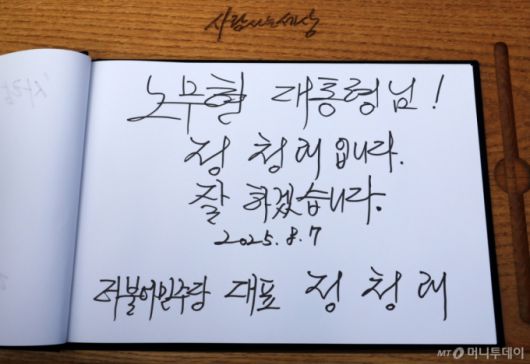 사람사는세상
노무현 대통령님!
정청래입니다.
잘 하겠습니다.
2025.8.7
더불어민주당 대표 정청래
MT 머니투데이